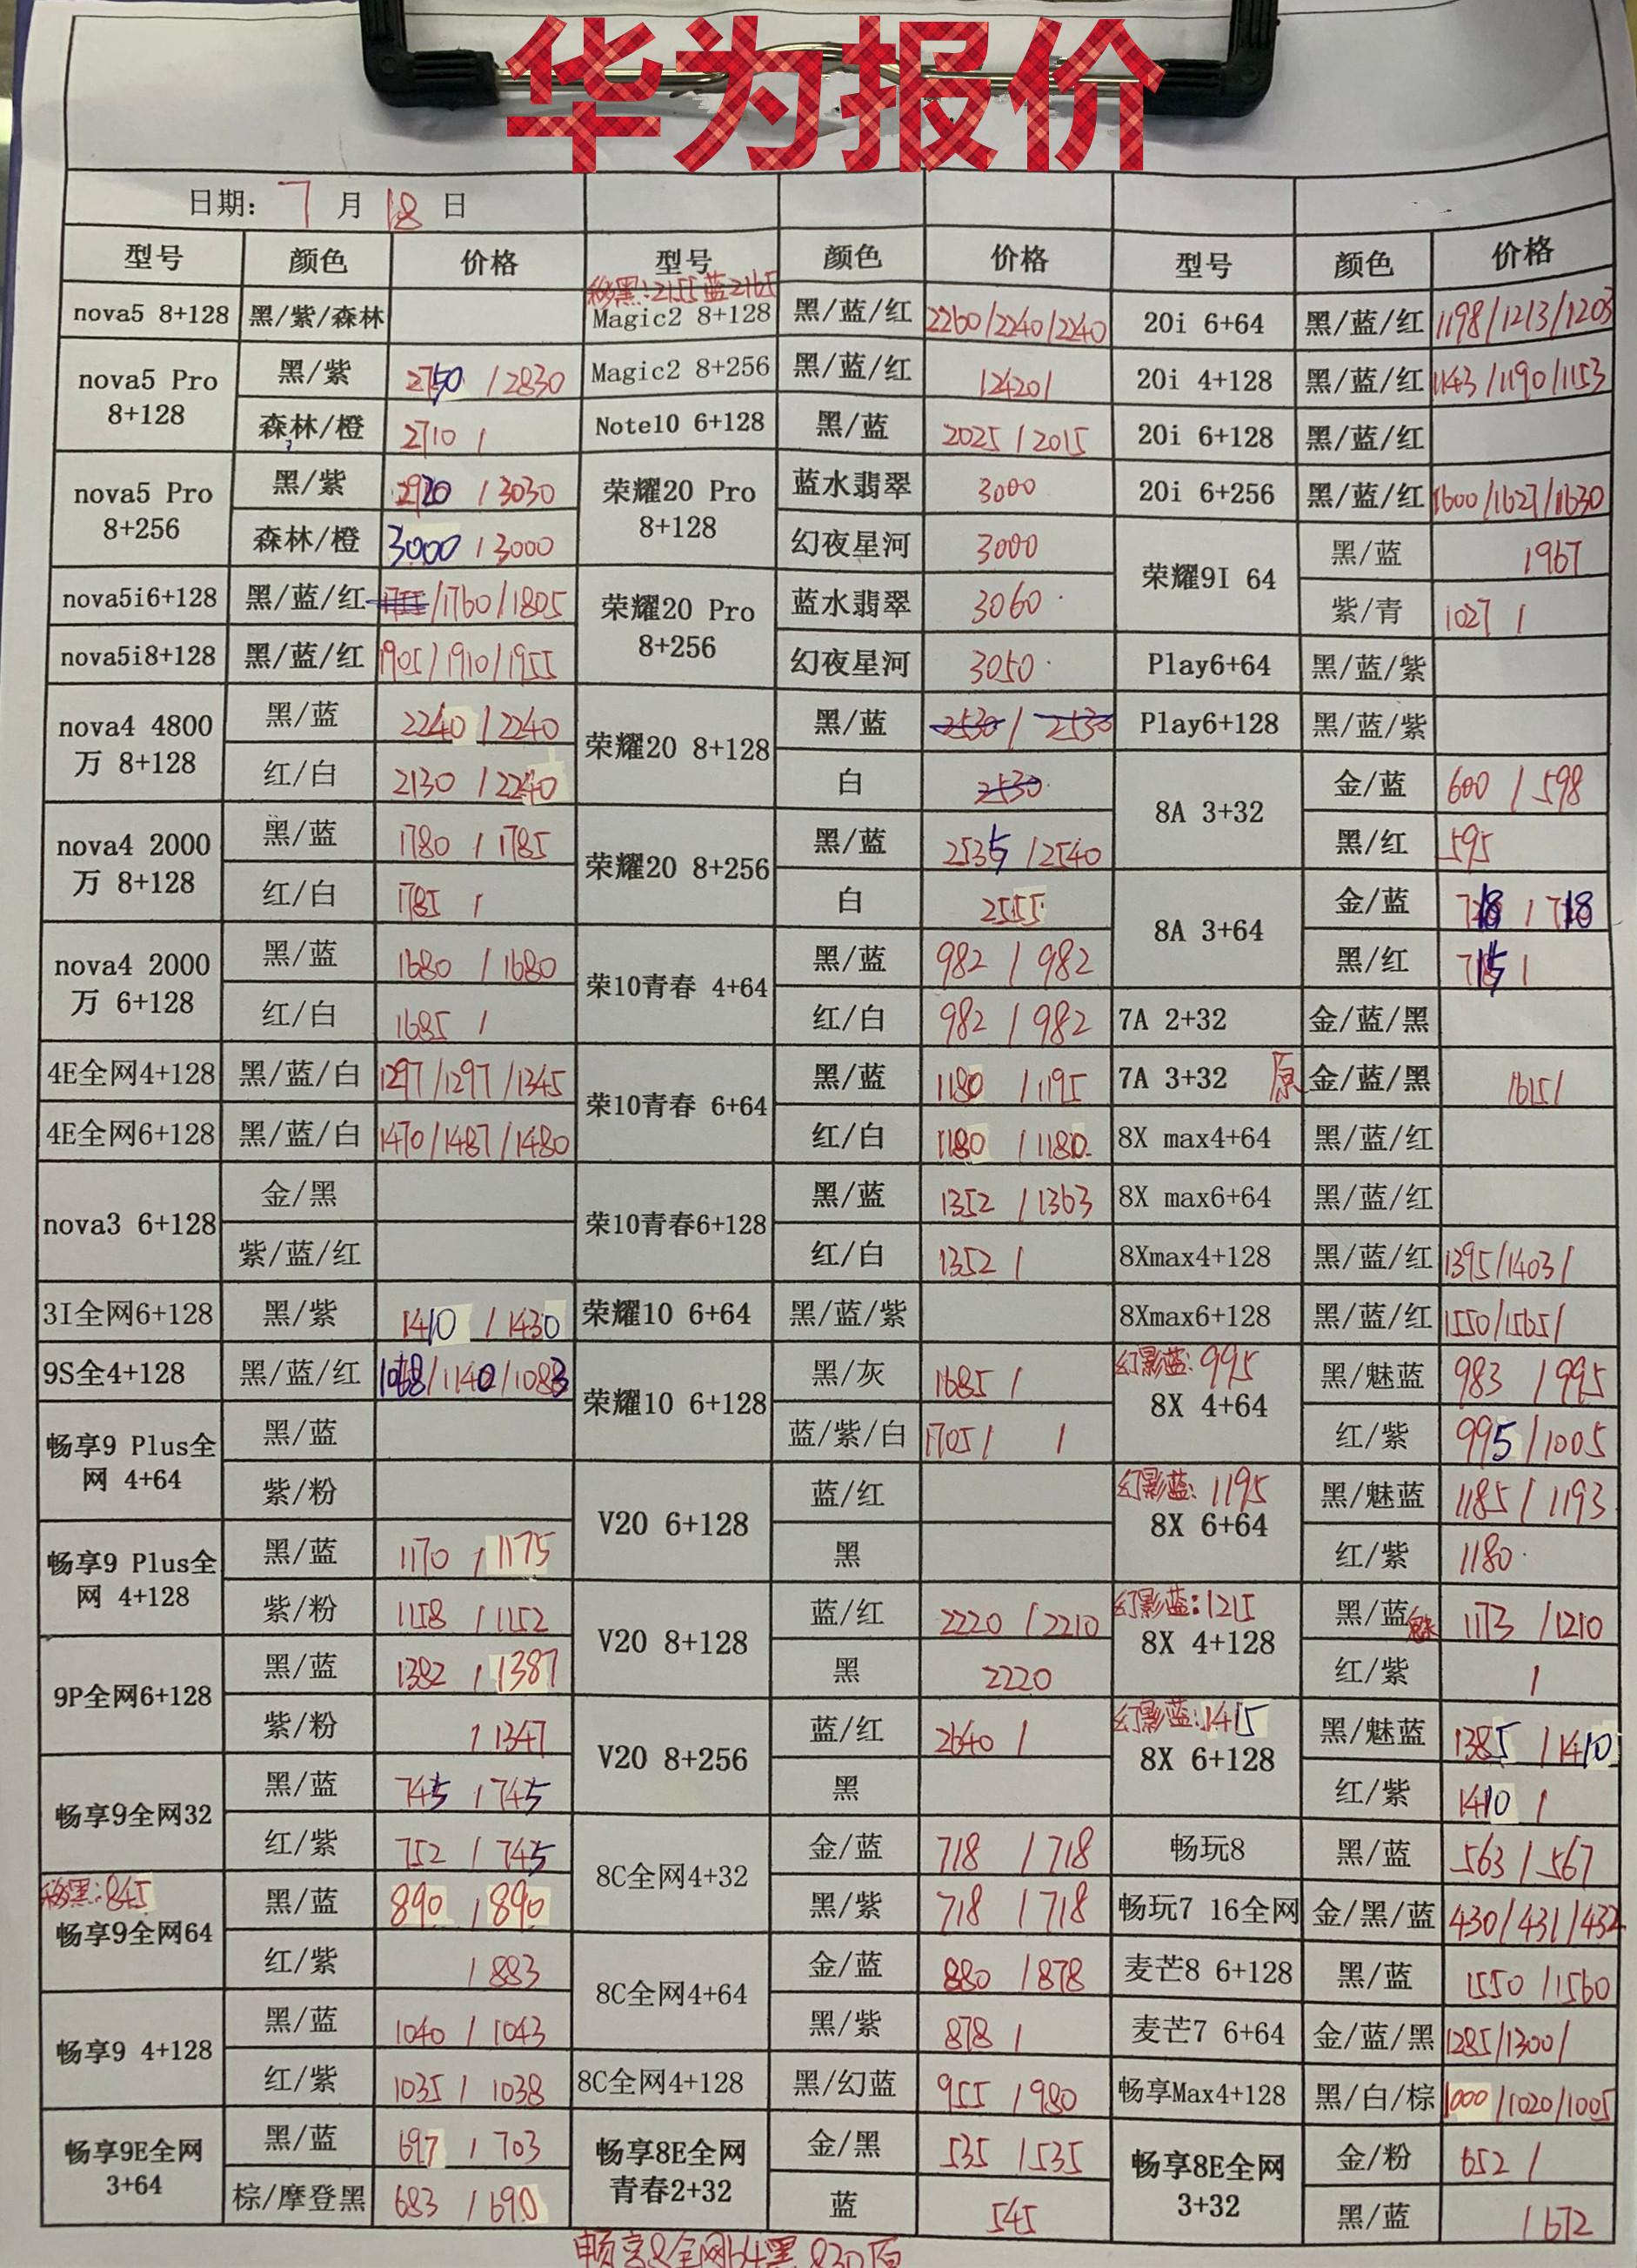 华为报价
日期: 7 月 18 日
型号 颜色 价格 型号 颜色 价格 型号 颜色 价格
nova5 8+128 黑/紫/森林
nova5 Pro 8+128 黑/紫 2750 / 2830
森林/橙 2710 /
nova5 Pro 8+256 黑/紫 2920 / 3030
森林/橙 3000 / 3000
nova5i6+128 黑/蓝/红 1755/1760/1805
nova5i8+128 黑/蓝/红 1905/1910/1955
nova4 4800万 8+128 黑/蓝 2240 / 2240
红/白 2130 / 2240
nova4 2000万 8+128 黑/蓝 1780 / 1785
红/白 1785 /
nova4 2000万 6+128 黑/蓝 1680 / 1680
红/白 1685 /
4E全网4+128 黑/蓝/白 1297/1297/1345
4E全网6+128 黑/蓝/白 1470/1487/1480
nova3 6+128 金/黑
紫/蓝/红
3I全网6+128 黑/紫 1410 / 1430
9S全4+128 黑/蓝/红 1068/1140/1083
畅享9 Plus全网 4+64 黑/蓝
紫/粉
畅享9 Plus全网 4+128 黑/蓝 1170 / 1175
紫/粉 1158 / 1152
9P全网6+128 黑/蓝 1382 / 1387
紫/粉 / 1347
畅享9全网32 黑/蓝 745 / 745
红/紫 752 / 745
移黑:845
畅享9全网64 黑/蓝 890 / 890
红/紫 / 883
畅享9 4+128 黑/蓝 1040 / 1043
红/紫 1035 / 1038
畅享9E全网 3+64 黑/蓝 697 / 703
棕/摩登黑 683 / 690
移黑:2155 蓝2165
Magic2 8+128 黑/蓝/红 2260/2240/2240
Magic2 8+256 黑/蓝/红 /2420/
Note10 6+128 黑/蓝 2025 / 2015
荣耀20 Pro 8+128 蓝水翡翠 3000
幻夜星河 3000
荣耀20 Pro 8+256 蓝水翡翠 3060
幻夜星河 3050
荣耀20 8+128 黑/蓝 2530 / 2530
白 2530
荣耀20 8+256 黑/蓝 2535 / 2540
白 2555
荣10青春 4+64 黑/蓝 982 / 982
红/白 982 / 982
荣10青春 6+64 黑/蓝 1180 / 1195
红/白 1180 / 1180
荣10青春6+128 黑/蓝 1352 / 1363
红/白 1352 /
荣耀10 6+64 黑/蓝/紫
荣耀10 6+128 黑/灰 1685 /
蓝/紫/白 1705 / /
V20 6+128 蓝/红
黑
V20 8+128 蓝/红 2220 / 2210
黑 2220
V20 8+256 蓝/红 2640 /
黑
8C全网4+32 金/蓝 718 / 718
黑/紫 718 / 718
8C全网4+64 金/蓝 880 / 878
黑/紫 878 /
8C全网4+128 黑/幻蓝 955 / 980
畅享8E全网青春2+32 金/黑 535 / 535
蓝 545
20i 6+64 黑/蓝/红 1198/1213/1203
20i 4+128 黑/蓝/红 1143/1190/1153
20i 6+128 黑/蓝/红
20i 6+256 黑/蓝/红 1600/1627/1630
荣耀9I 64 黑/蓝 1967
紫/青 1027 /
Play6+64 黑/蓝/紫
Play6+128 黑/蓝/紫
8A 3+32 金/蓝 600 / 598
黑/红 595
8A 3+64 金/蓝 718 / 718
黑/红 715 /
7A 2+32 金/蓝/黑
7A 3+32 原 金/蓝/黑 /615/
8X max4+64 黑/蓝/红
8X max6+64 黑/蓝/红
8Xmax4+128 黑/蓝/红 1395/1403/
8Xmax6+128 黑/蓝/红 1550/1565/
幻影蓝:995
8X 4+64 黑/魅蓝 983 / 995
红/紫 995 / 1005
幻影蓝:1195
8X 6+64 黑/魅蓝 1185 / 1193
红/紫 1180
幻影蓝:1215
8X 4+128 黑/蓝魅 1173 / 1210
红/紫 /
幻影蓝:1415
8X 6+128 黑/魅蓝 1385 / 1410
红/紫 1410 /
畅玩8 黑/蓝 563 / 567
畅玩7 16全网 金/黑/蓝 430/431/432
麦芒8 6+128 黑/蓝 1550 / 1560
麦芒7 6+64 金/蓝/黑 1285/1300/
畅享Max4+128 黑/白/棕 1000/1020/1005
畅享8E全网 3+32 金/粉 652 /
黑/蓝 / 672
畅享8全网64黑 830原